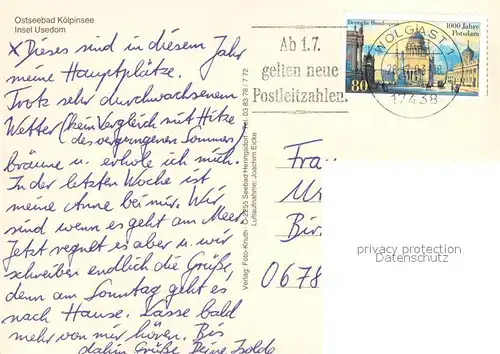 Ostseebad Kölpinsee
Insel Usedom
x Dieses sind in diesem Jahr
meine Hauptplätze.
Trotz sehr durchwachsenem
Wetter (kein Vergleich mit Hitze
des vergangenen Sommers)
bräune u. erhole ich mich.
In der letzten Woche ist
meine Anne bei mir. Wir
sind wenn es geht am Meer.
Jetzt regnet es aber u. wir
schreiben endlich die Grüße,
denn am Sonntag geht es
nach Hause. Lasse bald
mehr von mir hören. Bis
dahin Grüße Deine Isolde
Verlag: Foto-Knuth · O-2255 Seebad Heringsdorf · Tel. 03 83 78 / 7 72
Luftaufnahme: Joachim Eicke
Ab 1.7.
gelten neue
Postleitzahlen.
Deutsche Bundespost
1000 Jahre
Potsdam
80
WOLGAST 1
17438
Fra
Bir
0678
privacy protection
Datenschutz